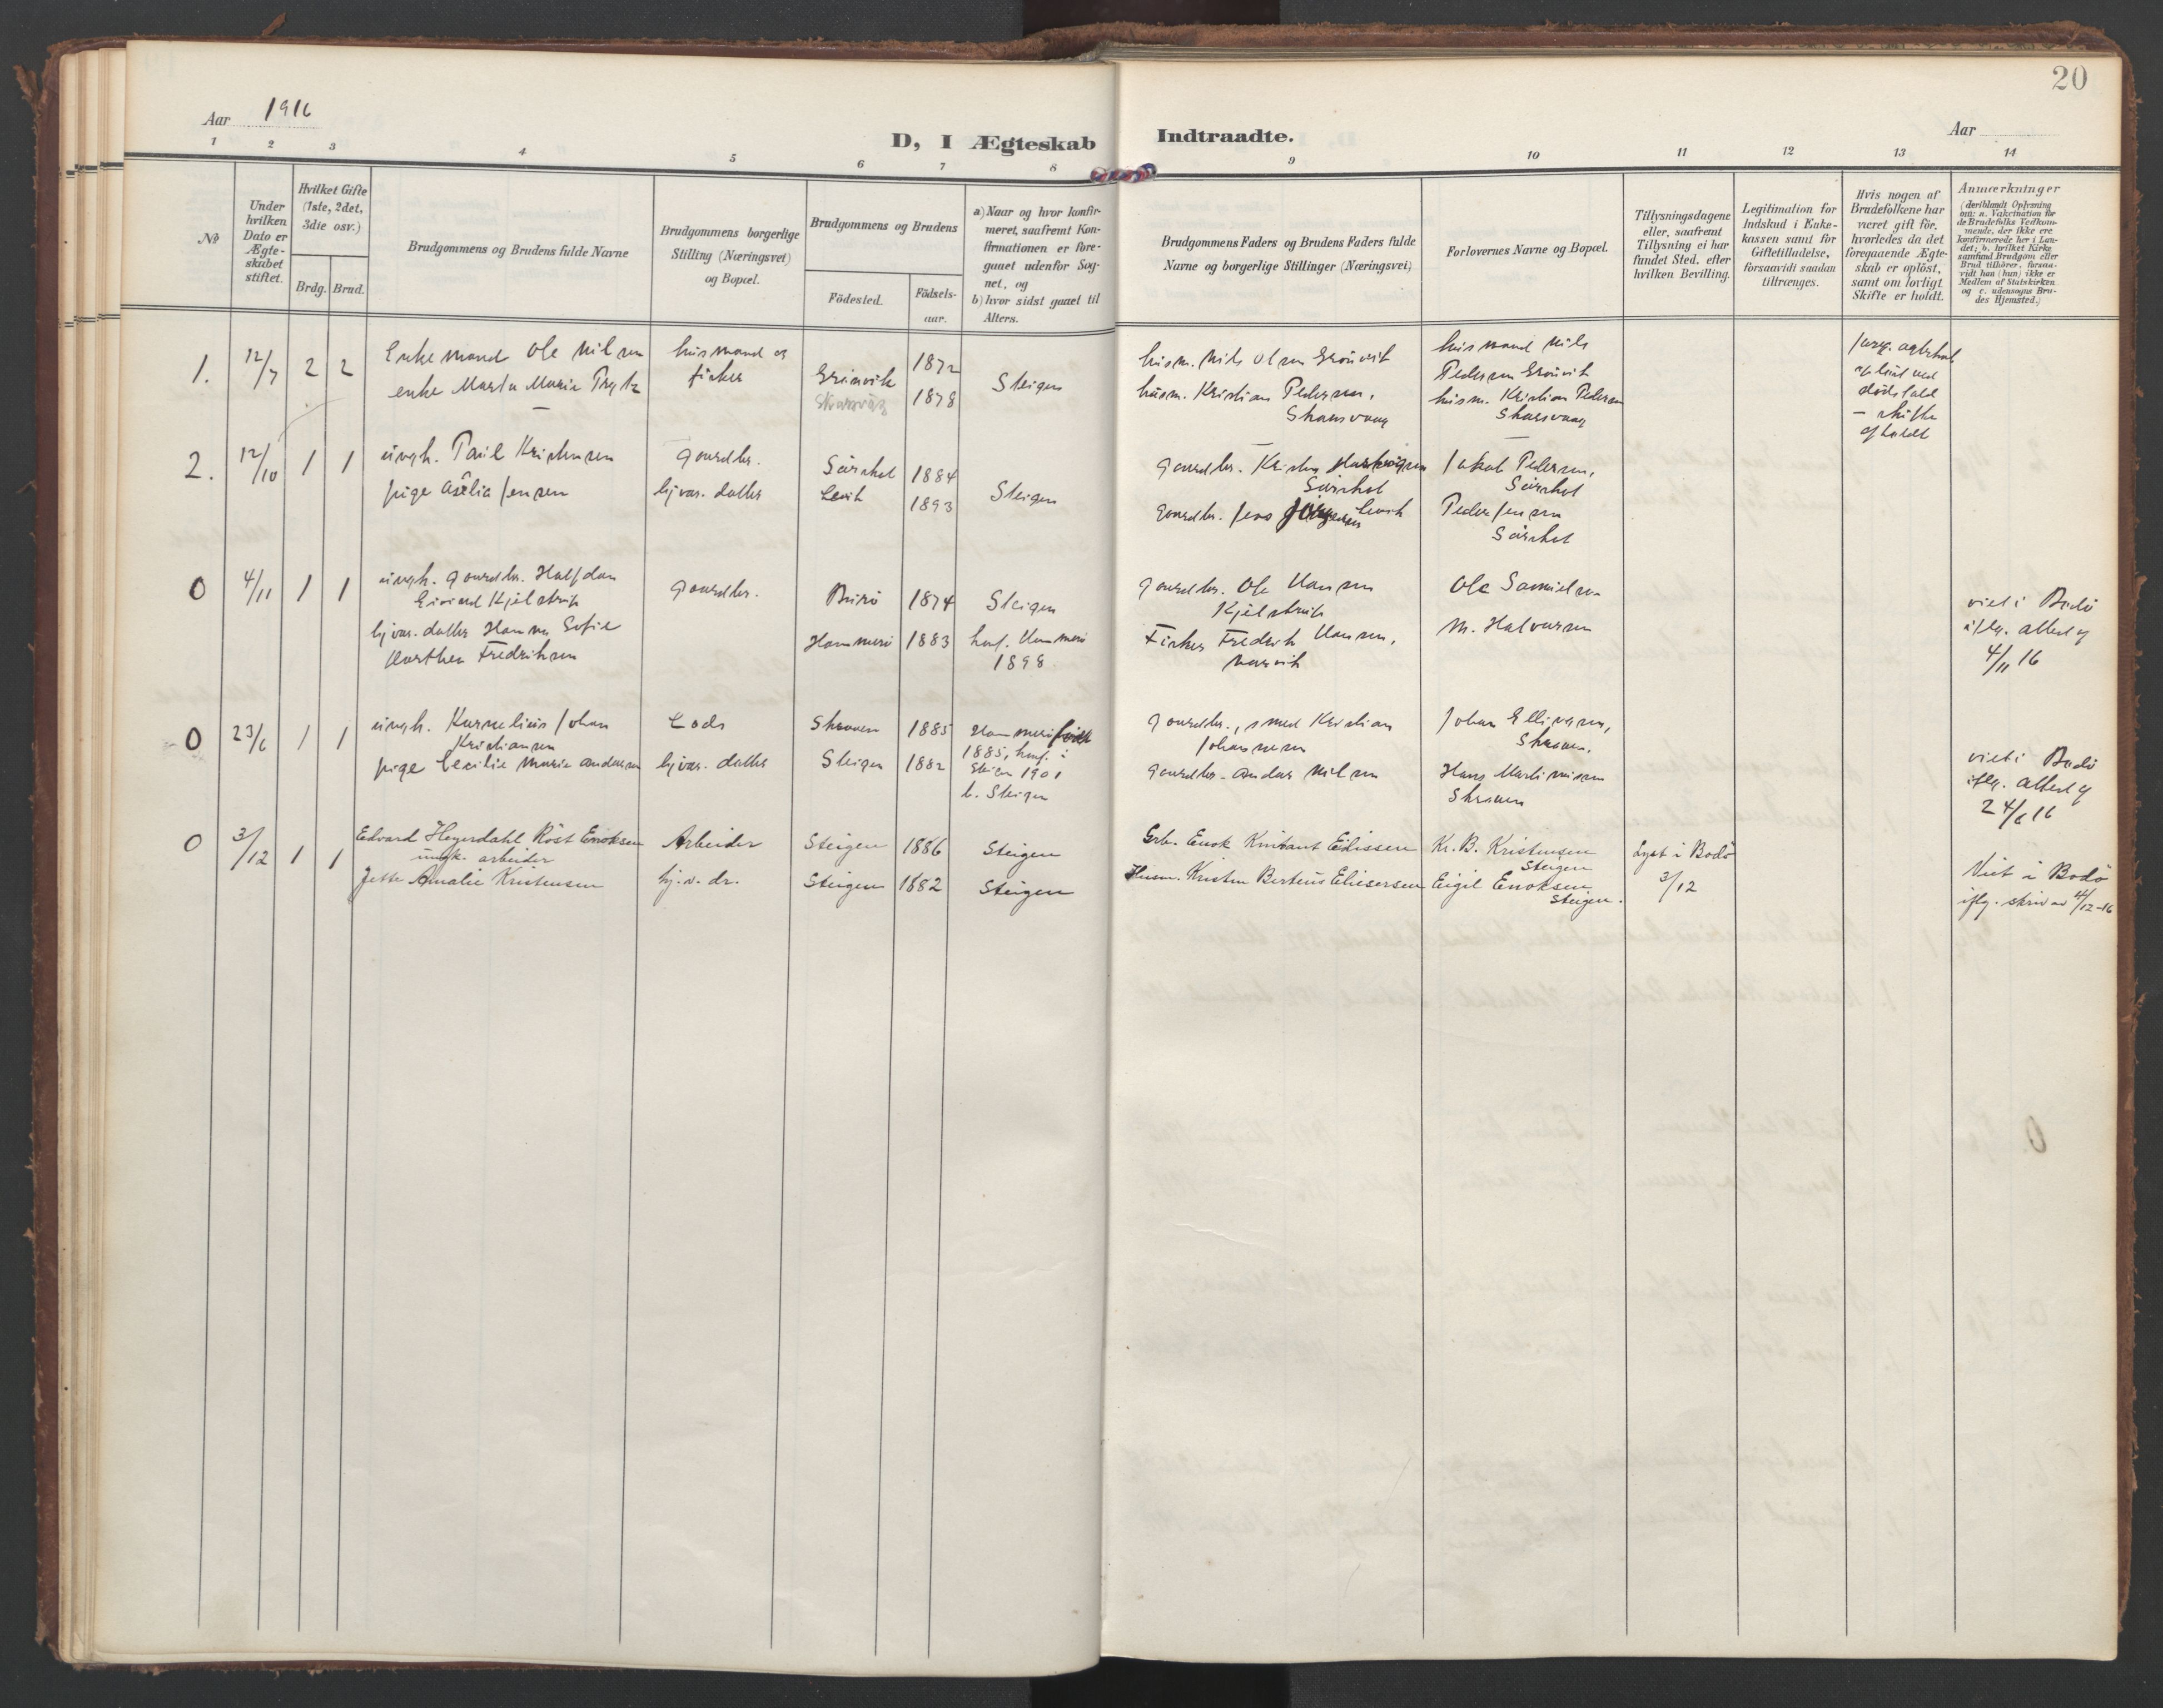 20
Aar 1916
D, I Ægteskab Indtraadte.
Aar
1 2 3 4 5 6 7 8 9 10 11 12 13 14
No
Under hvilken Dato er Ægteskabet stiftet.
Hvilket Gifte (1ste, 2det, 3die osv.)
Brdg. Brud.
Brudgommens og Brudens fulde Navne
Brudgommens borgerlige Stilling (Næringsvei) og Bopæl.
Brudgommens og Brudens
Födested.
Födsels-aar.
a) Naar og hvor konfirmeret, saafremt Konfirmationen er foregaaet udenfor Sognet, og
b) hvor sidst gaaet til Alters.
Brudgommens Faders og Brudens Faders fulde Navne og borgerlige Stillinger (Næringsvei)
Forlovernes Navne og Bopæl.
Tillysningsdagene eller, saafremt Tillysning ei har fundet Sted, efter hvilken Bevilling.
Legitimation for Indskud i Enkekassen samt for Giftetilladelse, forsaavidt saadan tiltrænges.
Hvis nogen af Brudefolkene har været gift för, hvorledes da det foregaaende Ægteskab er oplöst, samt om lovligt Skifte er holdt.
Anmærkninger
(deriblandt Oplysning om: a. Vakcination for de Brudefolks Vedkommende, der ikke ere konfirmerede her i Landet; b. hvilket Kirkesamfund Brudgom eller Brud tilhörer, forsaavidt han (hun) ikke er Medlem af Statskirken og c. udensogns Brudes Hjemsted.)
1. 12/7 2 2 Enkemand Ole Nilsen husmand og fisker 1872 Steigen
enke Marta Marie 1878
husm. Nils Olsen Grönvik
husm. Kristian Pedersen, Skarsvaag
husmand Nils Pedersen Grönvik
husm. Kristian Pedersen Skarsvaag
2. 12/10 1 1 ungk. Paul Kristensen gaardbr. Sörskot 1884
pige Aselia Jensen hjvær. datter Levik 1893 Steigen
gaardbr. Sörskot
gaardbr. Jens Levik
Jakob Pedersen, Sörskot
Peder Jensen Sörskot
0 4/11 1 1 ungk. gaardbr. Halfdan Eivind Kjelstrup gaardbr. Burö 1874 Steigen
hjvær. datter Hanna Sofie Dorthea Fredriksen Hammerö 1883 konf. Hammerö 1898
gaardbr. Ole Hansen Kjelstrup
Fisker Fredrik Hansen, Narvik
Ole Samuelsen
M. Halvorsen
viet i Bodö iflg. attest af 4/11 16
0 23/6 1 1 ungk. Kornelius Johan Kristiansen Lods Skraaven 1885 Hammerö födt
pige Cecilie Marie Andersen hjvær. datter Steigen 1882 1885, konf. i Steigen 1901
b. Steigen
gaardbr., smed Kristian Johannesen
gaardbr. Andas Nilsen
Johan Ellivsen, Skraaven.
Hans Martinusen Skraaven
viet i Bodö iflg. attest af 24/6 16
0 3/12 1 1 Edvard Heyerdahl Röst Enoksen ungk. arbeider Arbeider Steigen 1886 Steigen
Jette Amalie Kristensen hj. v. dr. Steigen 1882 Steigen
Grb. Enok Edissen
Husm. Kristen Berteus Eliesersen
Kr. B. Kristensen Steigen
Eigil Enoksen Steigen.
Lyst i Bodö 3/12
Viet i Bodö iflg. skriv av 4/12-16